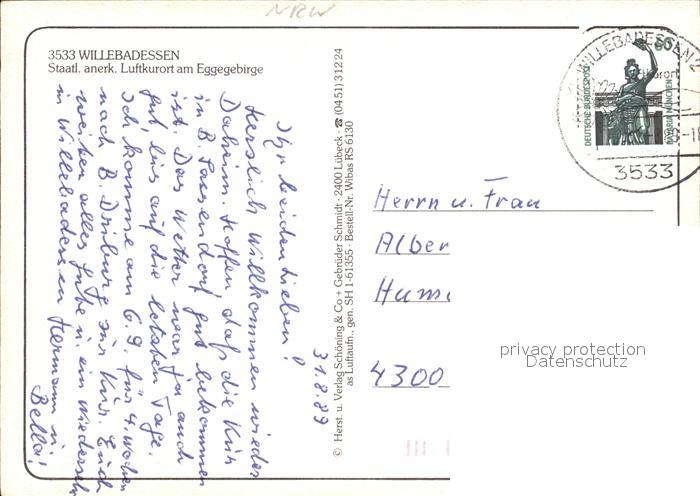 NRW
3533 WILLEBADESSEN
Staatl. anerk. Luftkurort am Eggegebirge
Ihr beiden Lieben!
Herzlich Willkommen wieder
Daheim. Hoffen daß die Kur
in B. gut bekommen
ist. Das Wetter war ja auch
gut, bis auf die letzten Tage.
Ich komme am 6.9. für 4 Wochen
nach B. Driburg zur Kur. Euch
weiter alles Gute u. ein Wiedersehn
in Willebadessen Hermann u.
Bella!
31.8.89
© Herst. u. Verlag Schöning & Co + Gebrüder Schmidt · 2400 Lübeck · ☎ (04 51) 3 12 24
as Luftaufn., gen. SH 1-61355 · Bestell-Nr. Wibas RS 6130
WILLEBADESSEN 2
60
DEUTSCHE BUNDESPOST
BAVARIA MÜNCHEN
3533
Herrn u. Frau
Alber
4300
privacy protection
Datenschutz